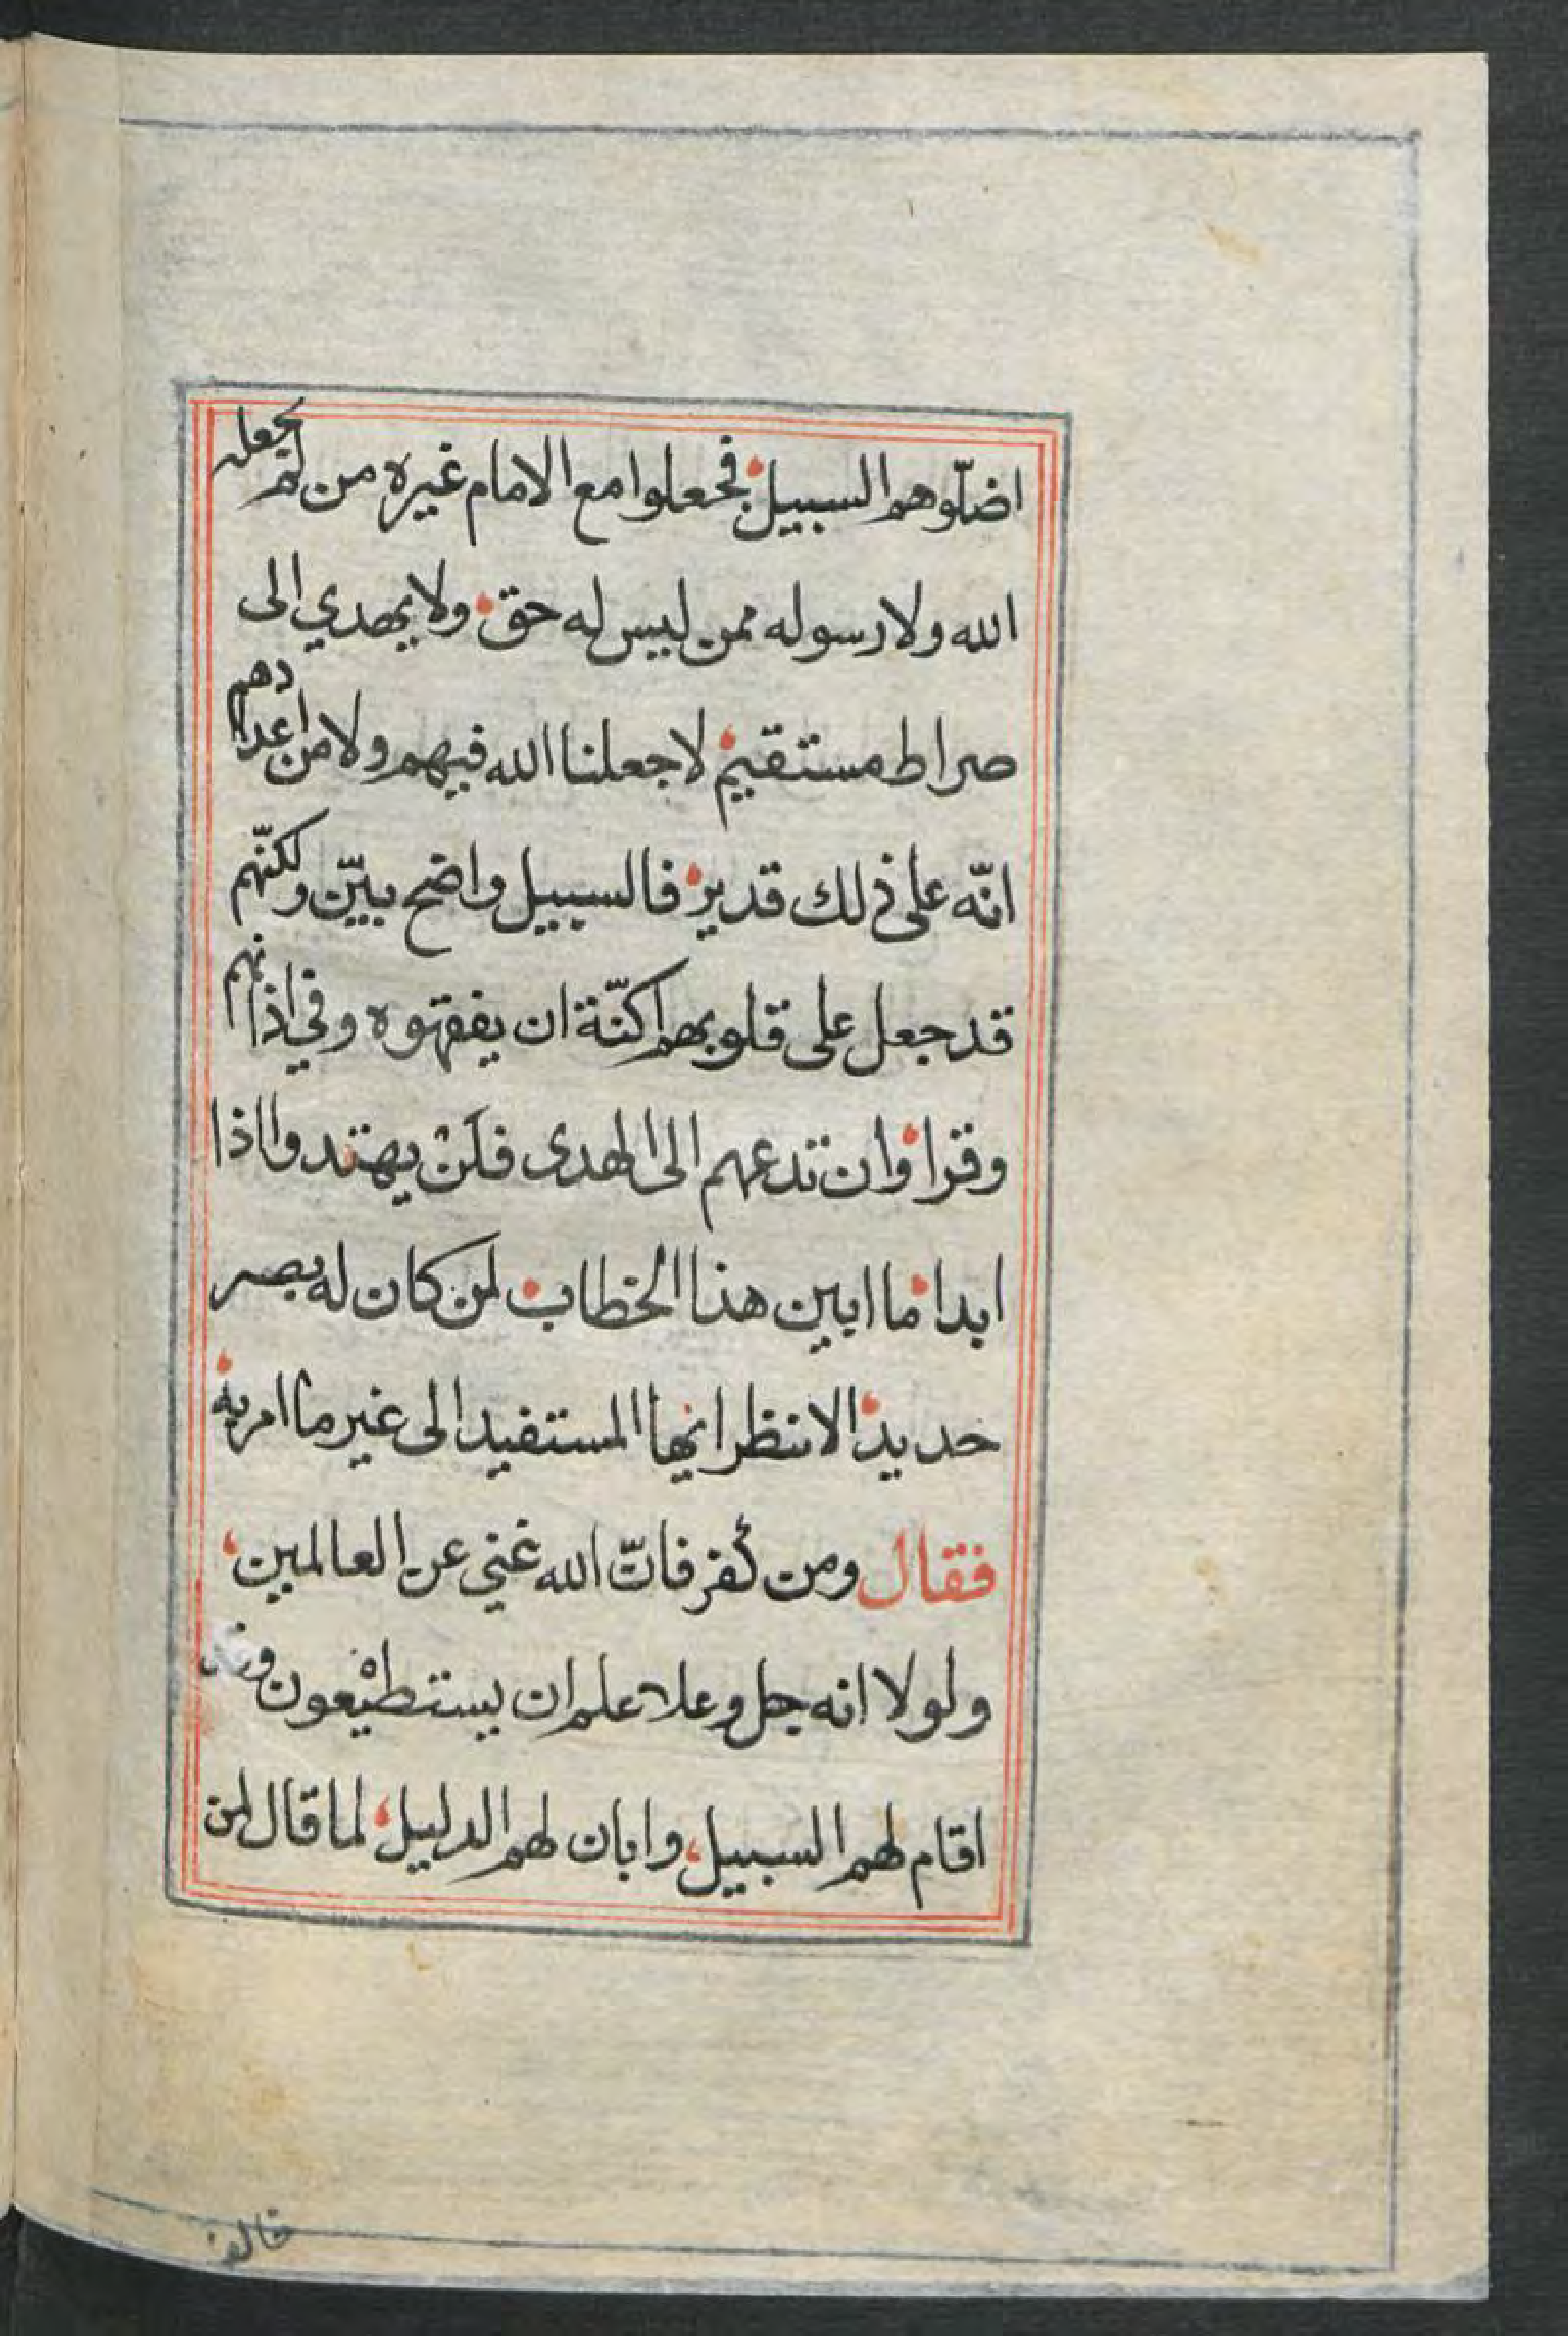 اضلّوهم السبيل فجعلوا مع الامام غيره من لم يجعله
الله ولا رسوله ممن ليس له حق ولا يهدي الى
صراط مستقيم لا جعلنا الله فيهم ولا من اعدادهم
انّه على ذلك قدير فالسبيل واضح بيّن ولكنّهم
قد جعل على قلوبهم اكنّة ان يفقهوه وفي اذانهم
وقرا وان تدعهم الى الهدى فلن يهتدوا اذا
ابدا ما ابين هذا الخطاب لمن كان له بصر
حديد الا تنظر ايها المستفيد الى غير ما امر به
فقال ومن كفر فانّ الله غني عن العالمين
ولولا انه جل وعلا علم ان يستطيعون
اقام لهم السبيل وابان لهم الدليل لما قال لمن
خالف